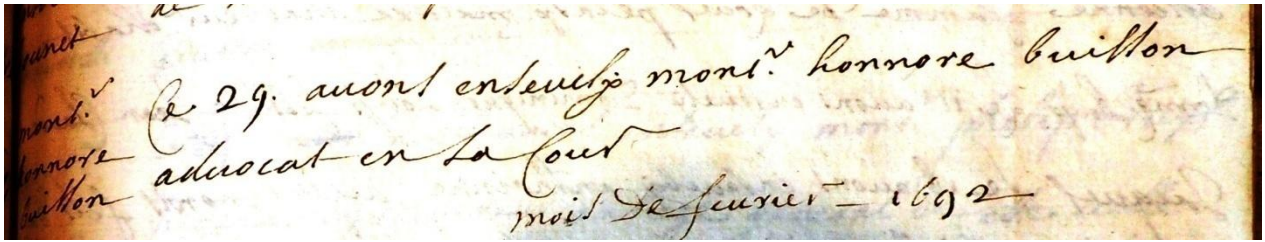 mons.r
honnore
buillon
Ce 29. avons ensevely mons.r honnore buillon
advocat en la Cour
mois de fevrier – 1692